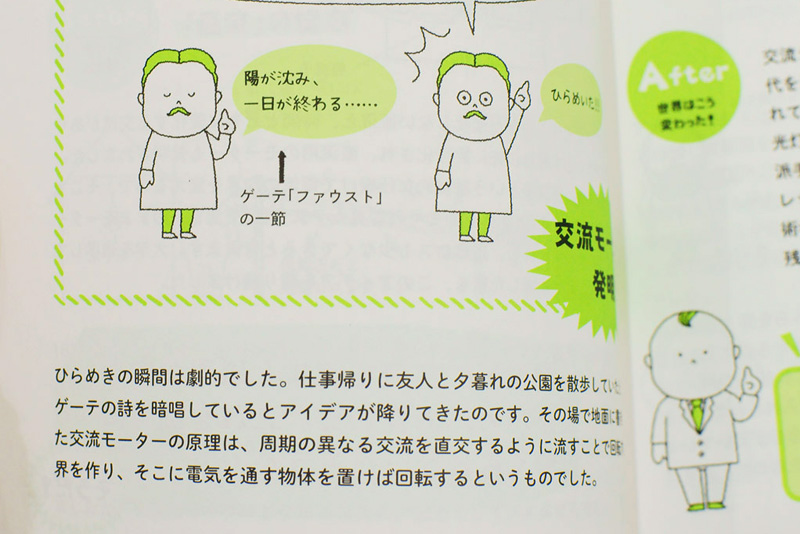 陽が沈み、
一日が終わる……
ひらめいた!!
ゲーテ「ファウスト」
の一節
交流モー
発明
ひらめきの瞬間は劇的でした。仕事帰りに友人と夕暮れの公園を散歩してい
ゲーテの詩を暗唱しているとアイデアが降りてきたのです。その場で地面に
た交流モーターの原理は、周期の異なる交流を直交するように流すことで回転
界を作り、そこに電気を通す物体を置けば回転するというものでした。
After
世界はこう
変わった!
交流
代を
れて
光灯
派手
レ
術
残